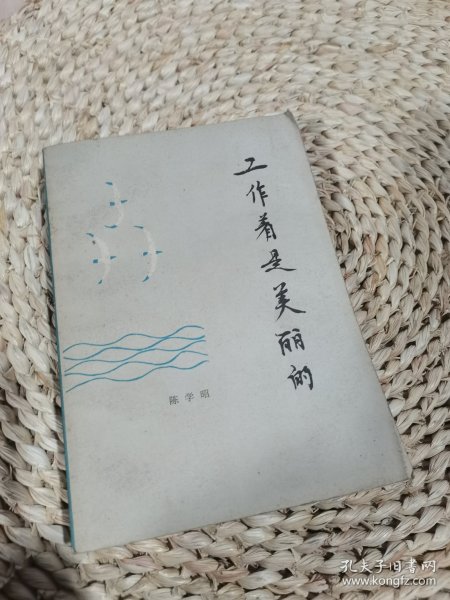 工作着是美丽的
陈学昭
孔夫子旧书网
www.kongfz.com